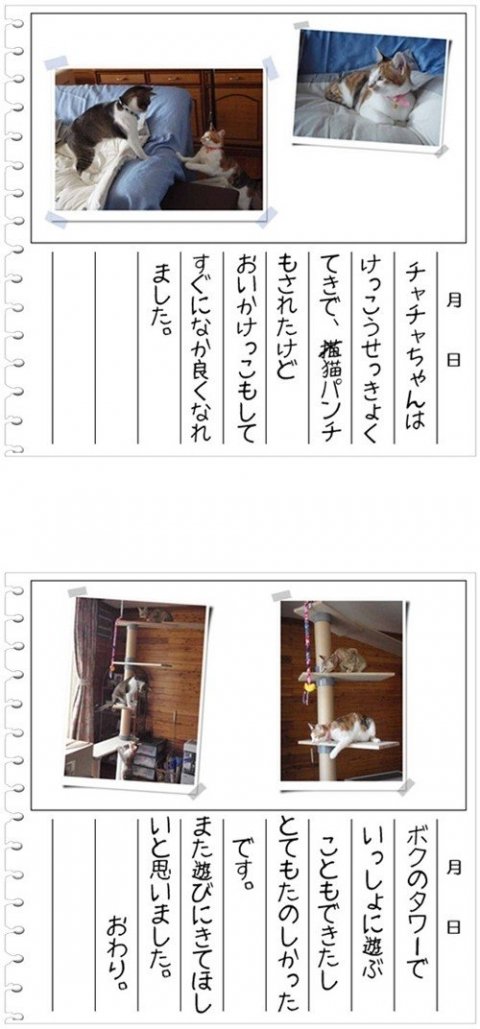 月 日
チャチャちゃんは
けっこうせっきょく
てきで、猫猫パンチ
もされたけど
おいかけっこもして
すぐになか良くなれ
ました。
月 日
ボクのタワーで
いっしょに遊ぶ
こともできたし
とてもたのしかった
です。
また遊びにきてほし
いと思いました。
おわり。